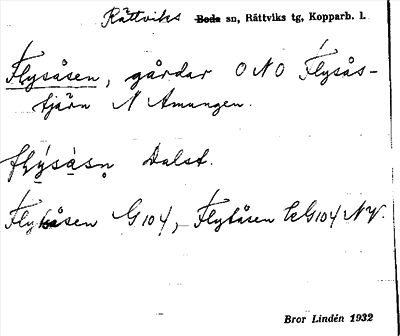 Rättviks Boda sn, Rättviks tg, Kopparb. l.
Flysåsen, gårdar O N O Flysås-
tjärn N Amungen.
flýsàsn Dalst.
Flysåsen G104, Flytåsen EG104 NV.
Bror Lindén 1932